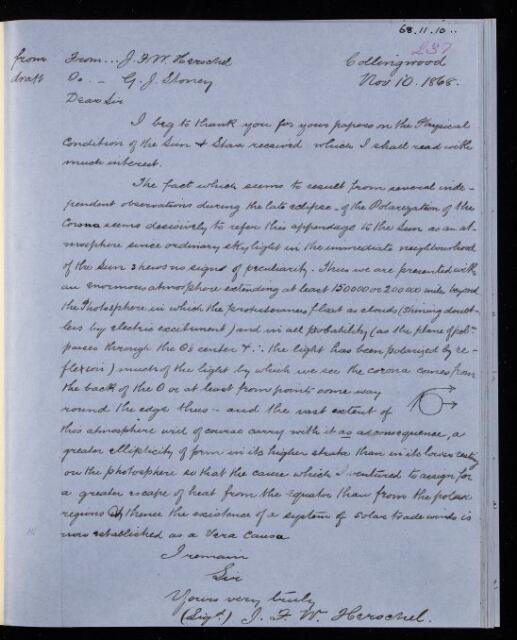 68.11.10..
237
from From... J. F. W. Herschel Collingwood
draft To.. - G. J. Stoney Nov 10. 1868.
Dear Sir
I beg to thank you for your papers on the Physical
Condition of the Sun & Stars received which I shall read with
much interest.
The fact which seems to result from several inde-
pendent observations during the late eclipse - of the Polarization of the
Corona seems decisively to refer this appendage to the Sun as an at-
mosphere since ordinary sky light in the immediate neighbourhood
of the Sun shews no signs of peculiarity. Thus we are presented with
an enormous atmosphere extending at least 150000 or 200000 miles beyond
the Photosphere in which the protuberances float as clouds (shining doubt-
less by electric excitement) and in all probability (as the plane of pol.n
passes through the Os center & ∴ the light has been polarized by re-
flexion) much of the light by which we see the corona comes from
the back of the O or at least from points some way
round the edge thus - and the vast extent of
this atmosphere will of course carry with it as a consequence, a
greater ellipticity of form in its higher strata than in its lower resting
on the photosphere so that the cause which I ventured to assign for
a greater escape of heat from the equator than from the polar
regions & thence the existence of a system of solar trade winds is
now established as a Vera Causa
I remain
Sir
Yours very truly
(Sig.d) J. F. W. Herschel.